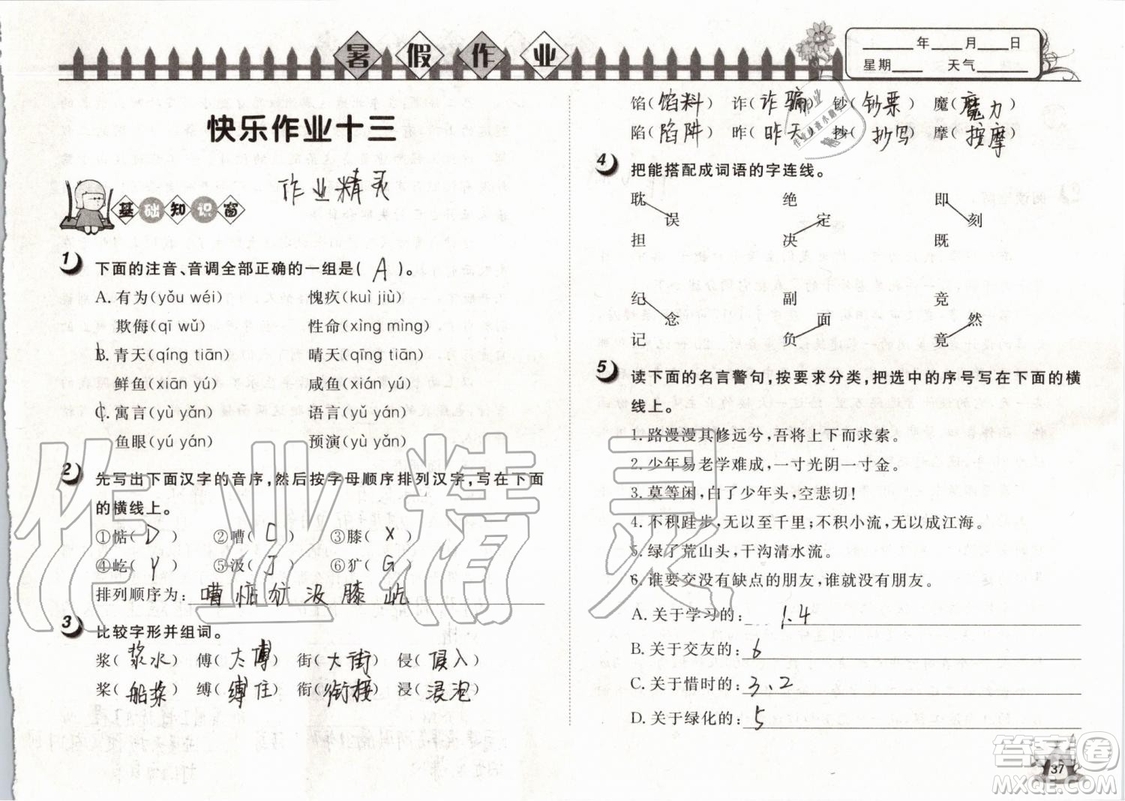 暑假作业
快乐作业十三
作业精灵
基础知识窗
1 下面的注音、音调全部正确的一组是( A )。
A.有为(yǒu wéi) 愧疚(kuì jiù)
欺侮(qī wǔ) 性命(xìng mìng)
B.青天(qíng tiān) 晴天(qíng tiān)
鲜鱼(xiān yú) 咸鱼(xián yú)
C.寓言(yù yán) 语言(yǔ yán)
鱼眼(yú yǎn) 预演(yù yǎn)
2 先写出下面汉字的音序,然后按字母顺序排列汉字,写在下面
的横线上。
①惦( D ) ②嘈( C ) ③膝( X )
④屹( Y ) ⑤汲( J ) ⑥犷( G )
排列顺序为: 嘈 惦 犷 汲 膝 屹
3 比较字形并组词。
浆( 浆水 ) 傅( 大傅 ) 街( 大街 ) 侵( 侵入 )
桨( 船桨 ) 缚( 缚住 ) 衔( 衔接 ) 浸( 浸泡 )
____年____月____日
星期____ 天气____
馅( 馅料 ) 诈( 诈骗 ) 钞( 钞票 ) 魔( 魔力 )
陷( 陷阱 ) 昨( 昨天 ) 抄( 抄写 ) 摩( 按摩 )
4 把能搭配成词语的字连线。
耽 绝 即
误 定 刻
担 决 既
纪 副 竞
念 面 然
记 负 竟
5 读下面的名言警句,按要求分类,把选中的序号写在下面的横
线上。
1.路漫漫其修远兮,吾将上下而求索。
2.少年易老学难成,一寸光阴一寸金。
3.莫等闲,白了少年头,空悲切!
4.不积跬步,无以至千里;不积小流,无以成江海。
5.绿了荒山头,干沟清水流。
6.谁要交没有缺点的朋友,谁就没有朋友。
A.关于学习的: 1.4
B.关于交友的: 6
C.关于惜时的: 3、2
D.关于绿化的: 5
37
作业精灵
答案圈
MXQE.COM